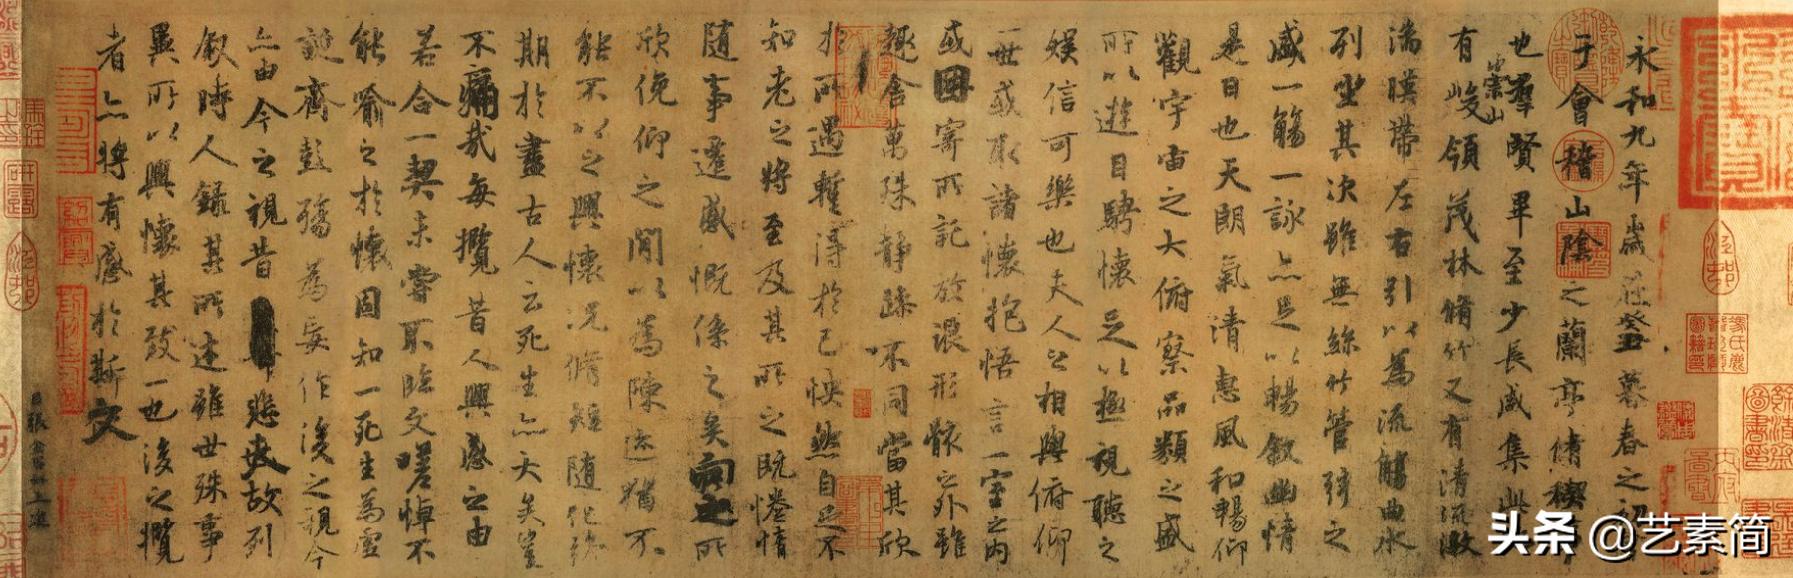 永和九年歲在癸丑暮春之初
于會稽山陰之蘭亭脩禊
也羣賢畢至少長咸集此
有崇山峻領茂林脩竹又有清流激
湍暎帶左右引以為流觴曲水
列坐其次雖無絲竹管弦之
盛一觴一詠亦足以暢敘幽情
是日也天朗氣清惠風和暢仰
觀宇宙之大俯察品類之盛
所以遊目騁懷足以極視聽之
娛信可樂也夫人之相與俯仰
一世或取諸懷抱悟言一室之內
或因寄所託放浪形骸之外雖
趣舍萬殊靜躁不同當其欣
於所遇暫得於己怏然自足不
知老之將至及其所之既惓情
隨事遷感慨係之矣向之所
欣俛仰之閒以為陳迹猶不
能不以之興懷況脩短隨化終
期於盡古人云死生亦大矣豈
不痛哉每攬昔人興感之由
若合一契未嘗不臨文嗟悼不
能喻之於懷固知一死生為虛
誕齊彭殤為妄作後之視今
亦由今之視昔悲夫故列
敘時人錄其所述雖世殊事
異所以興懷其致一也後之攬
者亦將有感於斯文
臣張金界奴上進
头条 @艺素简